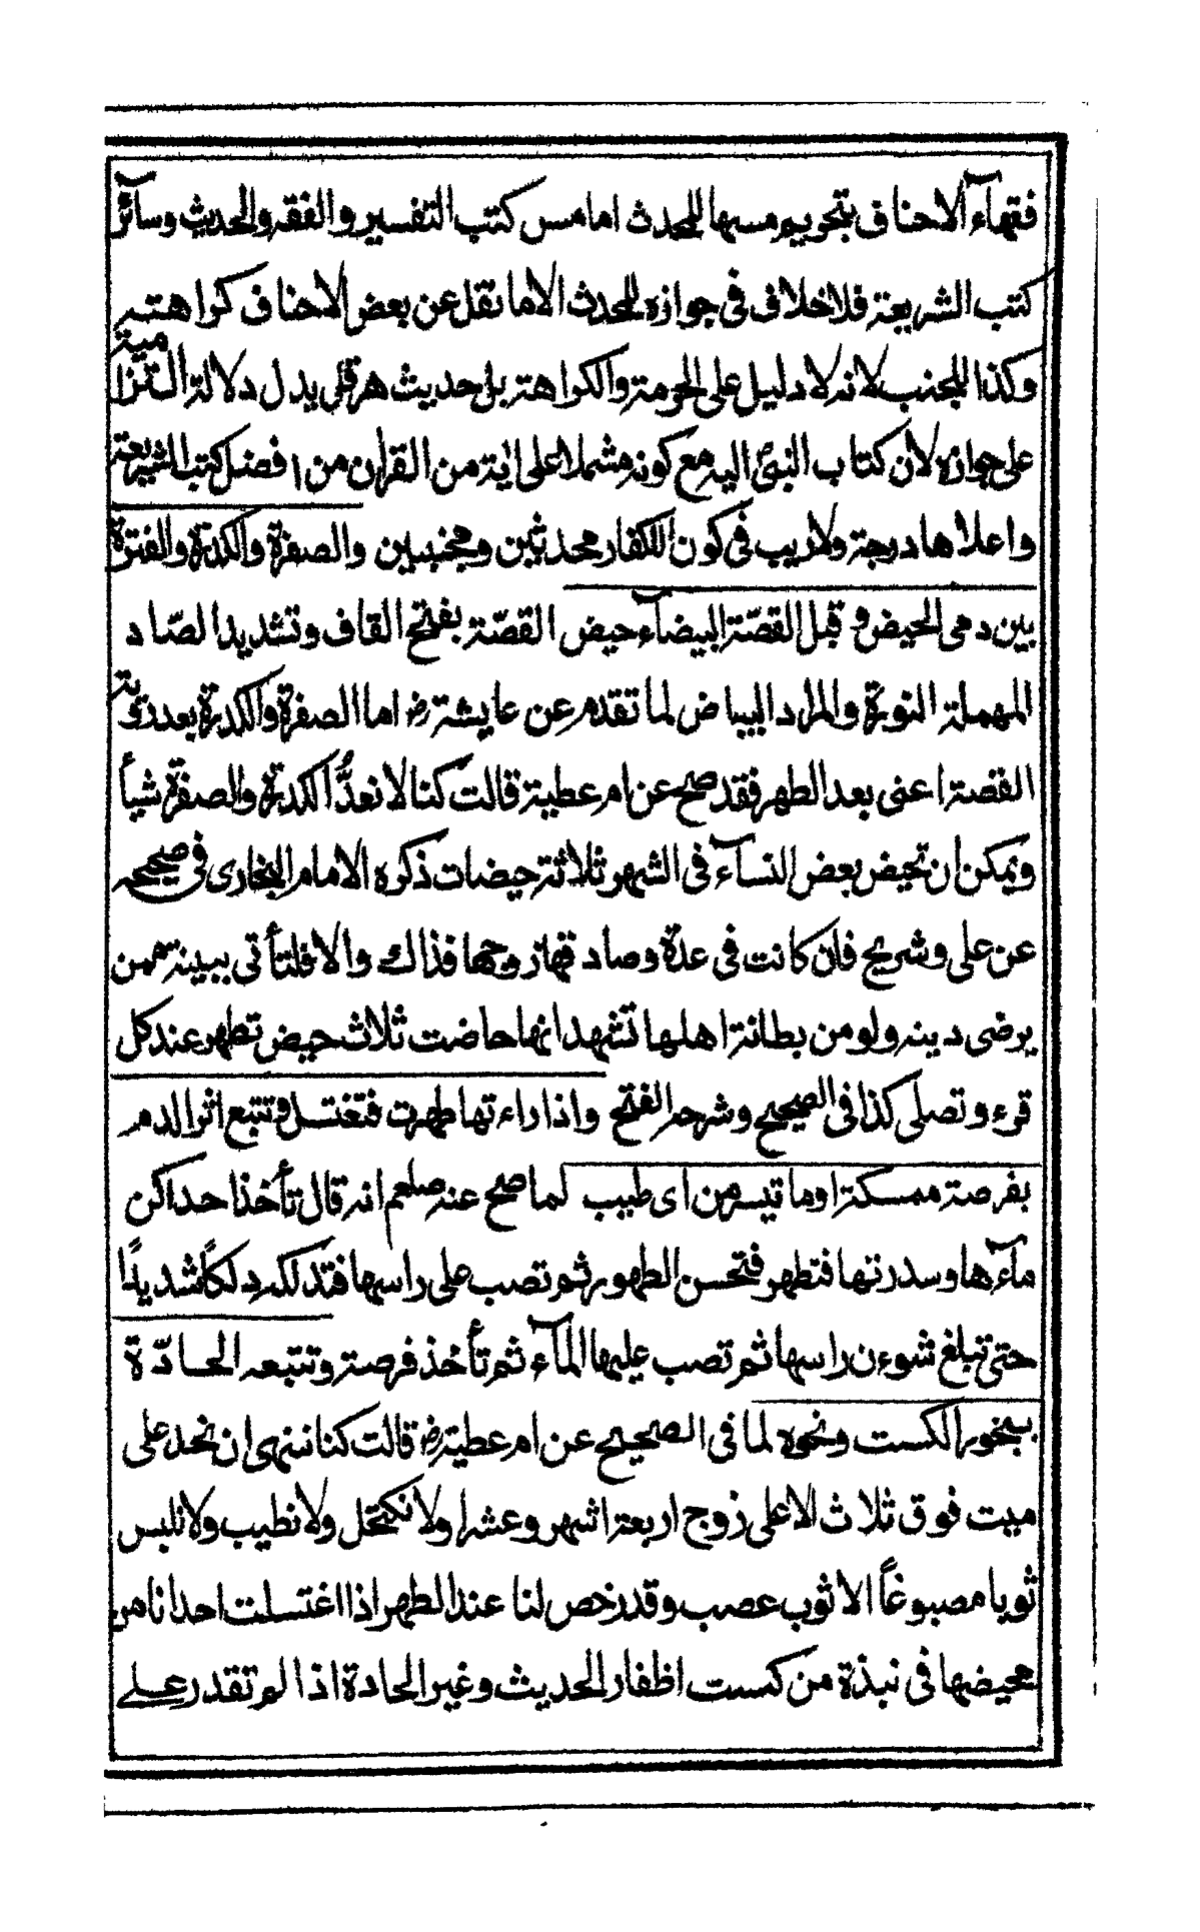 فقهآء الاحناف بتحريم مسها للمحدث اما مس كتب التفسير والفقه والحديث وسآئر
كتب الشريعة فلا خلاف فى جوازه للمحدث الا ما نقل عن بعض الاحناف كراهته
وكذا للجنب لانه لا دليل على الحرمة والكراهة بل حديث هرقل يدل دلالة التزامية
على جوازه لان كتاب النبى اليه مع كونه مشملا على اية من القران من افضل كتب الشريعة
واعلاها درجة ولا ريب فى كون الكفار محدثين ومجنبين والصفرة والكدرة والفترة
بين دمى الحيض وقبل القصّة البيضآء حيض القصّة بفتح القاف وتشديد الصّاد
المهملة النورة والمراد البياض لما تقدم عن عايشة رض اما الصفرة والكدرة بعد روية
القصة اعنى بعد الطهر فقد صح عن ام عطية قالت كنا لا نعدُّ الكدرة والصفرة شيأ
ويمكن ان تحيض بعض النسآء فى الشهر ثلاثة حيضات ذكره الامام البخارى فى صحيحه
عن على وشريح فان كانت فى عدة وصادقها زوجها فذاك والا فلتأتى ببينة ممن
يرضى دينه ولو من بطانة اهلها تشهد انها حاضت ثلاث حيض تطهر عند كل
قرء وتصلى كذا فى الصحيح وشرحه الفتح واذا راءتها طهرت فتغتسل وتتبع اثر الدم
بفرصة ممسكة او ما تيسر من اى طيب لما صح عنه صلعم انه قال تأخذ احداكن
مآءها وسدرتها فتطهر فتحسن الطهور ثم تصب على راسها فتدلكه دلكاً شديداً
حتى تبلغ شوءن راسها ثم تصب عليها المآء ثم تأخذ فرصة وتتبعه الحادّة
ببخور الكست ونحوه لما فى الصحيح عن ام عطية رض قالت كنا ننهى ان نحد على
ميت فوق ثلاث الا على زوج اربعة اشهر وعشرا ولا نكتحل ولا نطيب ولا نلبس
ثوبا مصبوغاً الا ثوب عصب وقد رخص لنا عند الطهر اذا اغتسلت احدانا من
محيضها فى نبذة من كست اظفار الحديث وغير الحادة اذا لم تقدر على